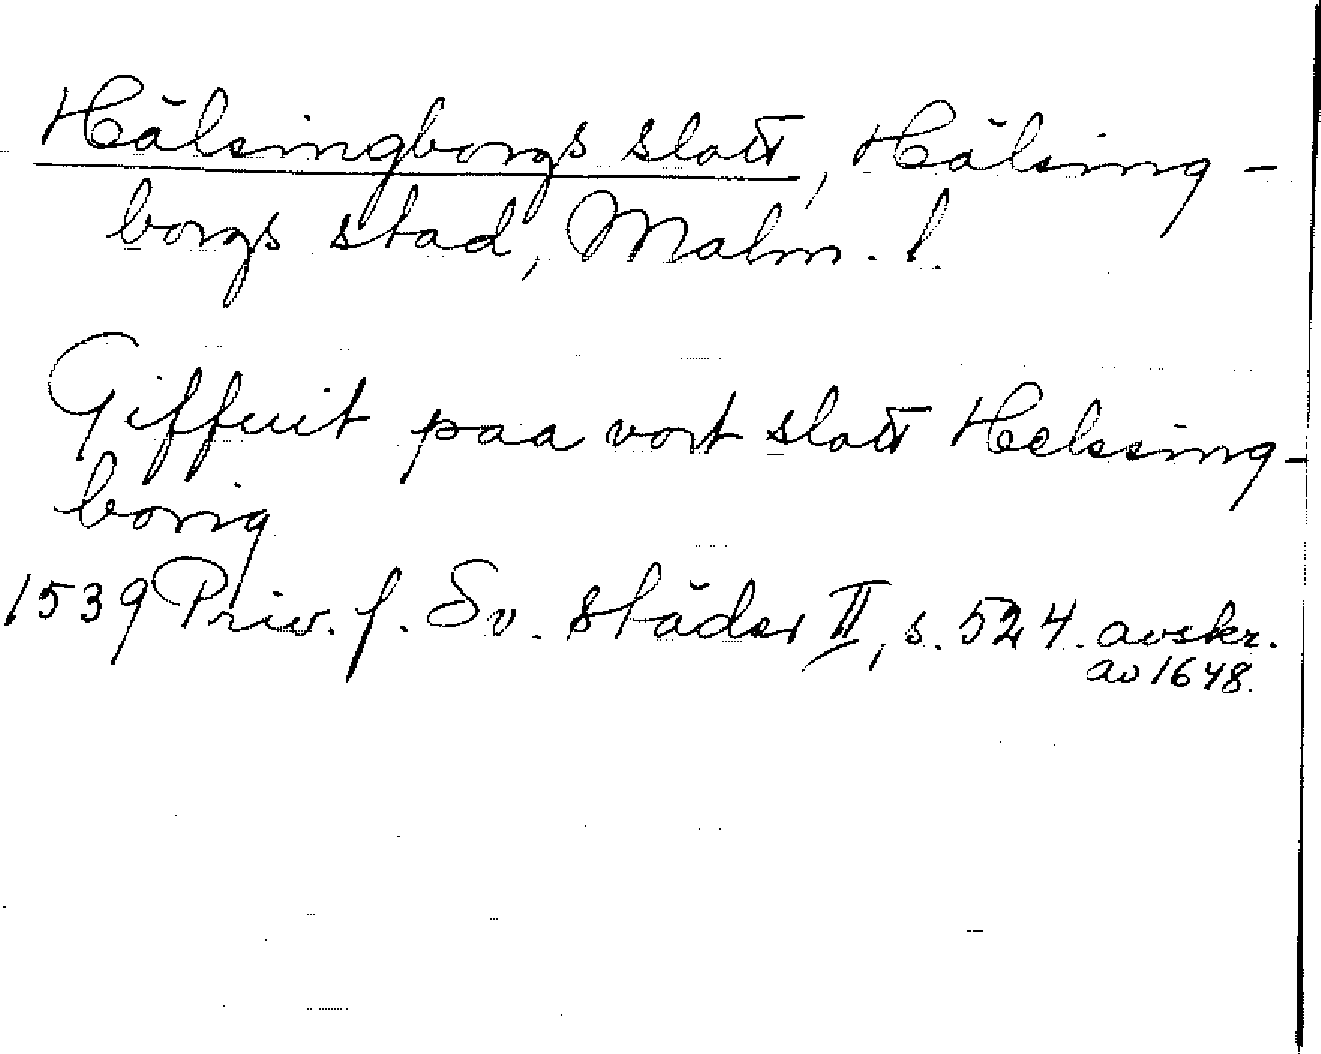 Hälsingborgs slott, Hälsing-
borgs stad, Malm. l.
Giffuit paa vort slott Helsing-
borig
1539 Priv. f. Sv. städer II, s. 524. avskr.
av 1648.